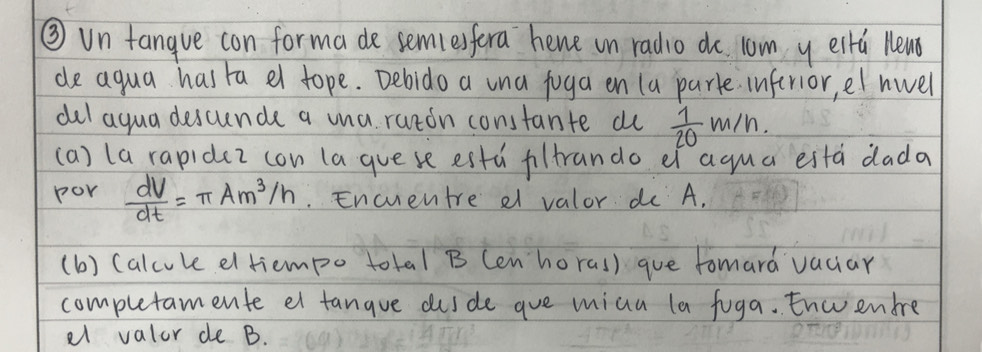 ③ Un tanque con forma de semiesfera tiene un radio de 10m y está lleno
de agua hasta el tope. Debido a una fuga en la parte inferior, el nivel
del agua desciende a una razón constante de 1/20 m/h.
(a) La rapidez con la que se está filtrando el agua está dada
por dV/dt = π A m³/h. Encuentre el valor de A.
(b) Calcule el tiempo total B (en horas) que tomará vaciar
completamente el tanque desde que inicia la fuga. Encuentre
el valor de B.